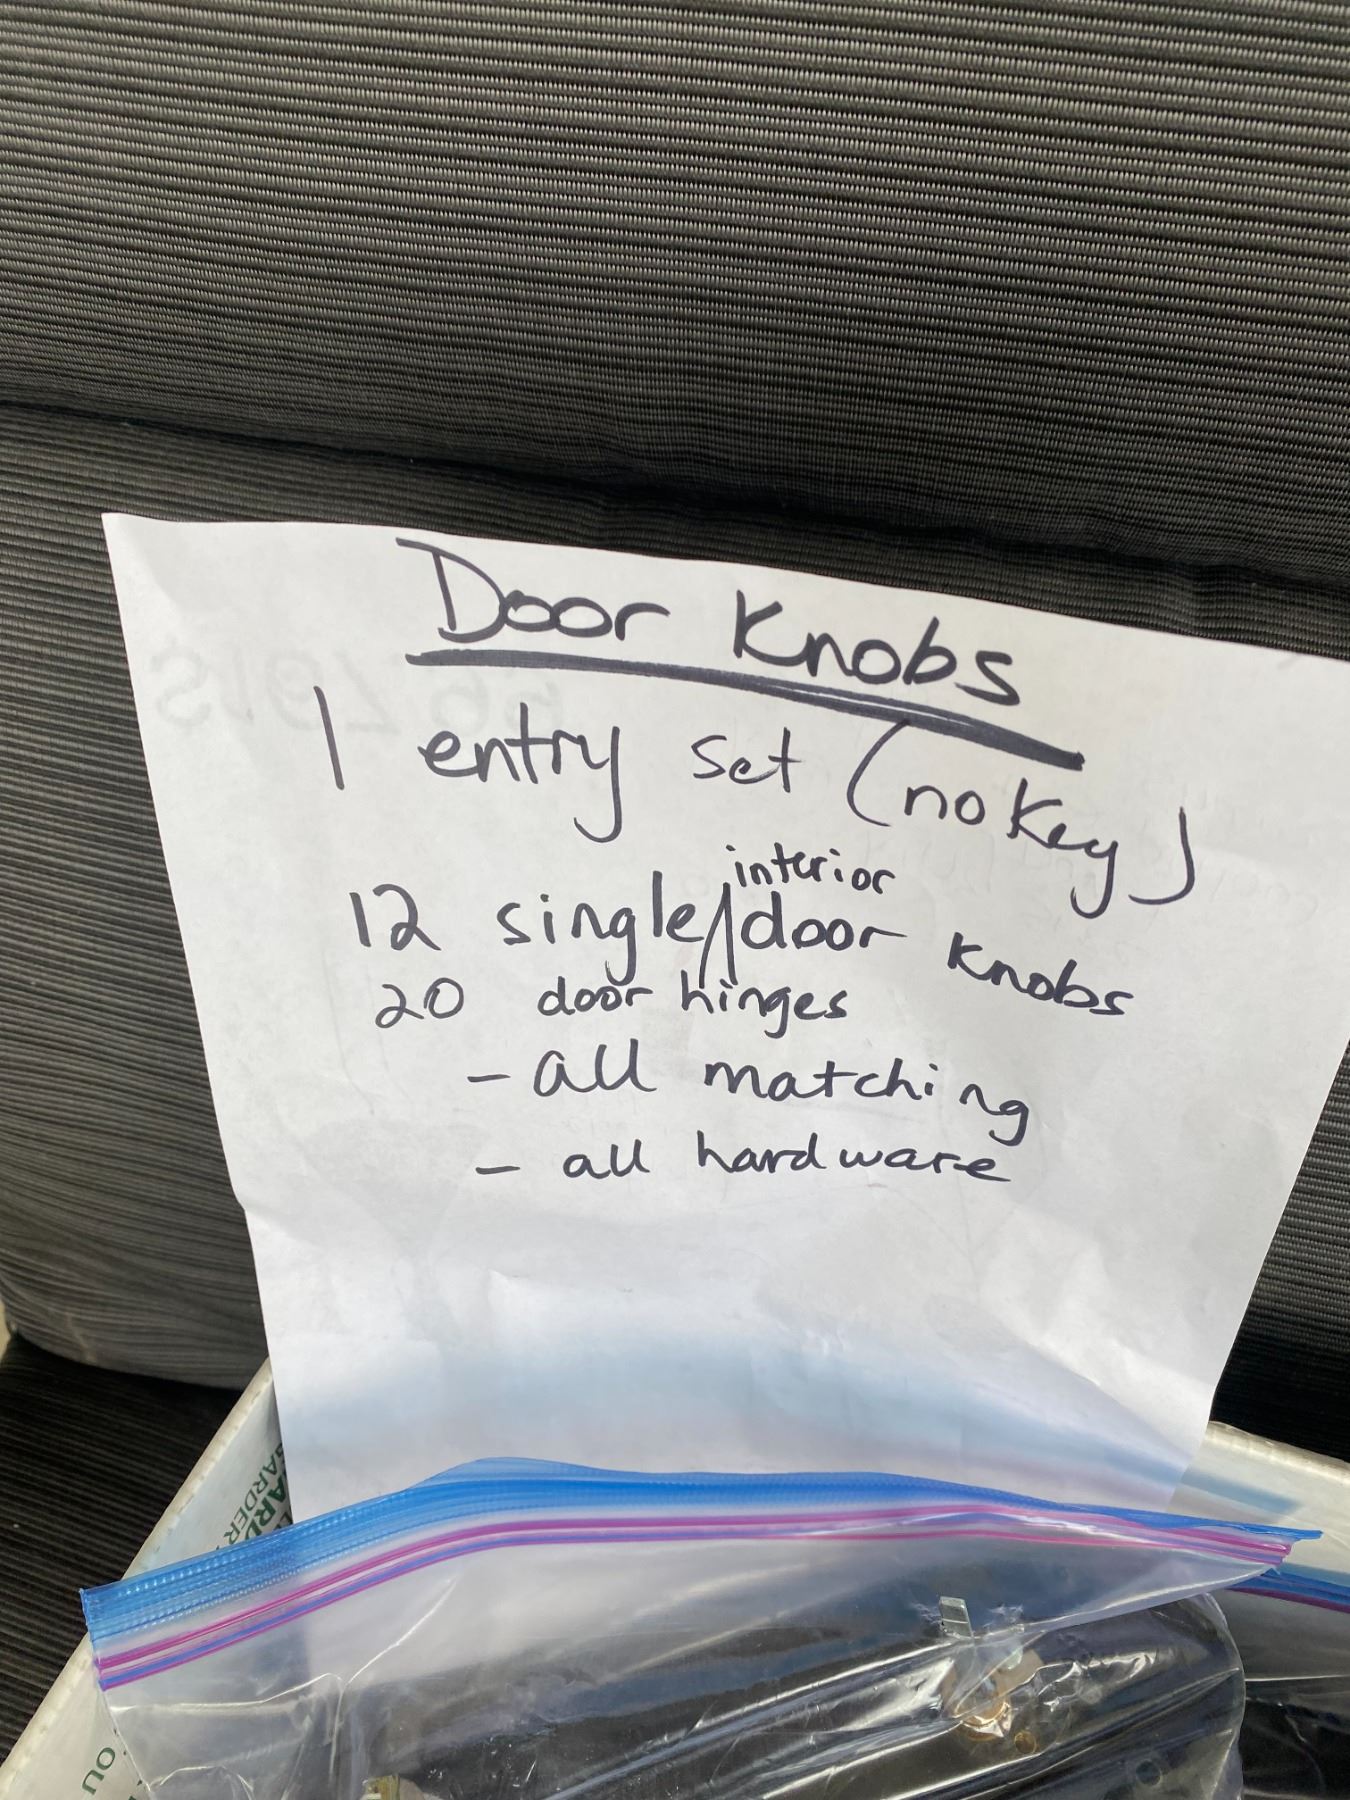 Door Knobs
1 entry set (no Key)
12 single/interior door knobs
20 door hinges
- all matching
- all hardware
GARDEN
OU